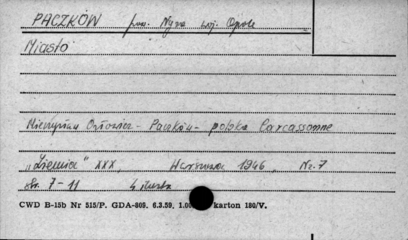 PACZKÓW pow. Nysa woj. Opole
Miasto
Mieczysław Orłowicz - Paczków - polska Carcassonne
„Ziemia" XXX, Warszawa 1946, Nr. 7
str. 7-11 4 ilustr.
CWD B-15b Nr 515/P. GDA-809. 6.3.59, 1.00 karton 180/V.